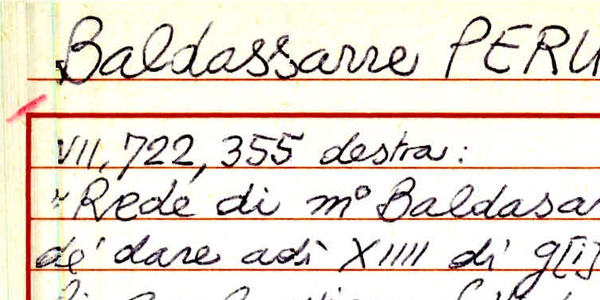 Baldassarre PERU
VII, 722, 355 destra:
"Rede di m° Baldasa
de' dare adì XIIII di g[i]